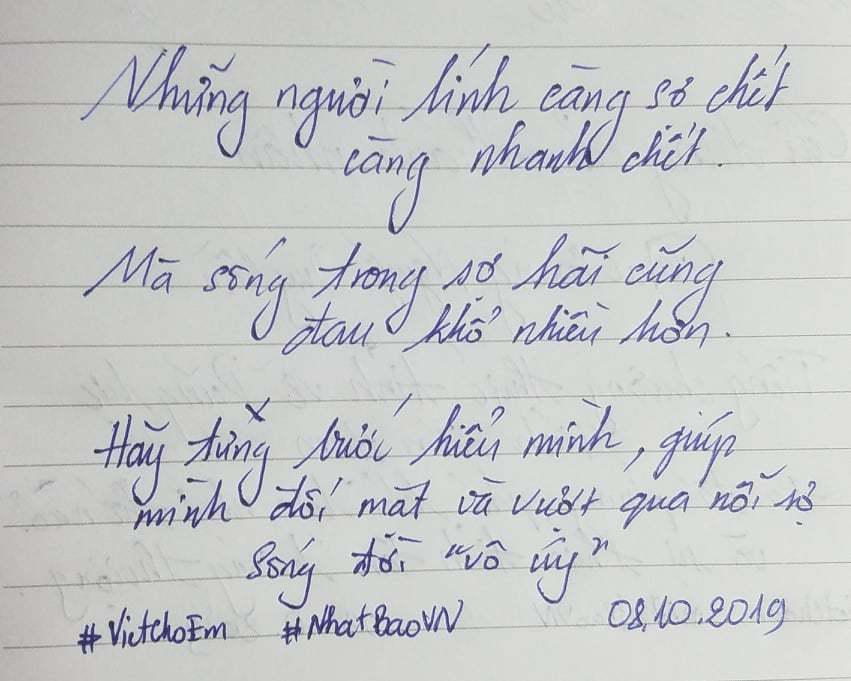 Những người lính càng sợ chết
càng nhanh chết.
Mà sống trong sợ hãi cũng
đau khổ nhiều hơn.
Hãy từng bước hiểu mình, giúp
mình đối mặt và vượt qua nỗi sợ
Sống đời "vô úy"
#VietchoEm #NhatBaoVN 08.10.2019